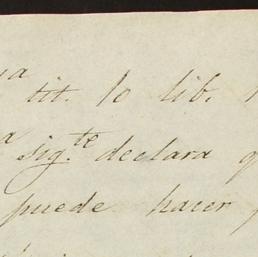 tit. 10 lib. 1
sig.te declara q
puede hacer